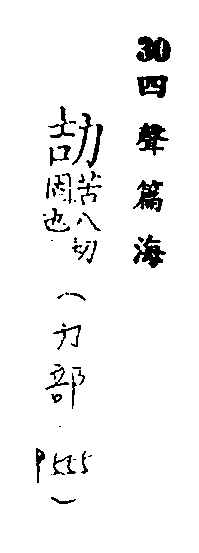 30四聲篇海
劼苦八切固也(力部.P555)